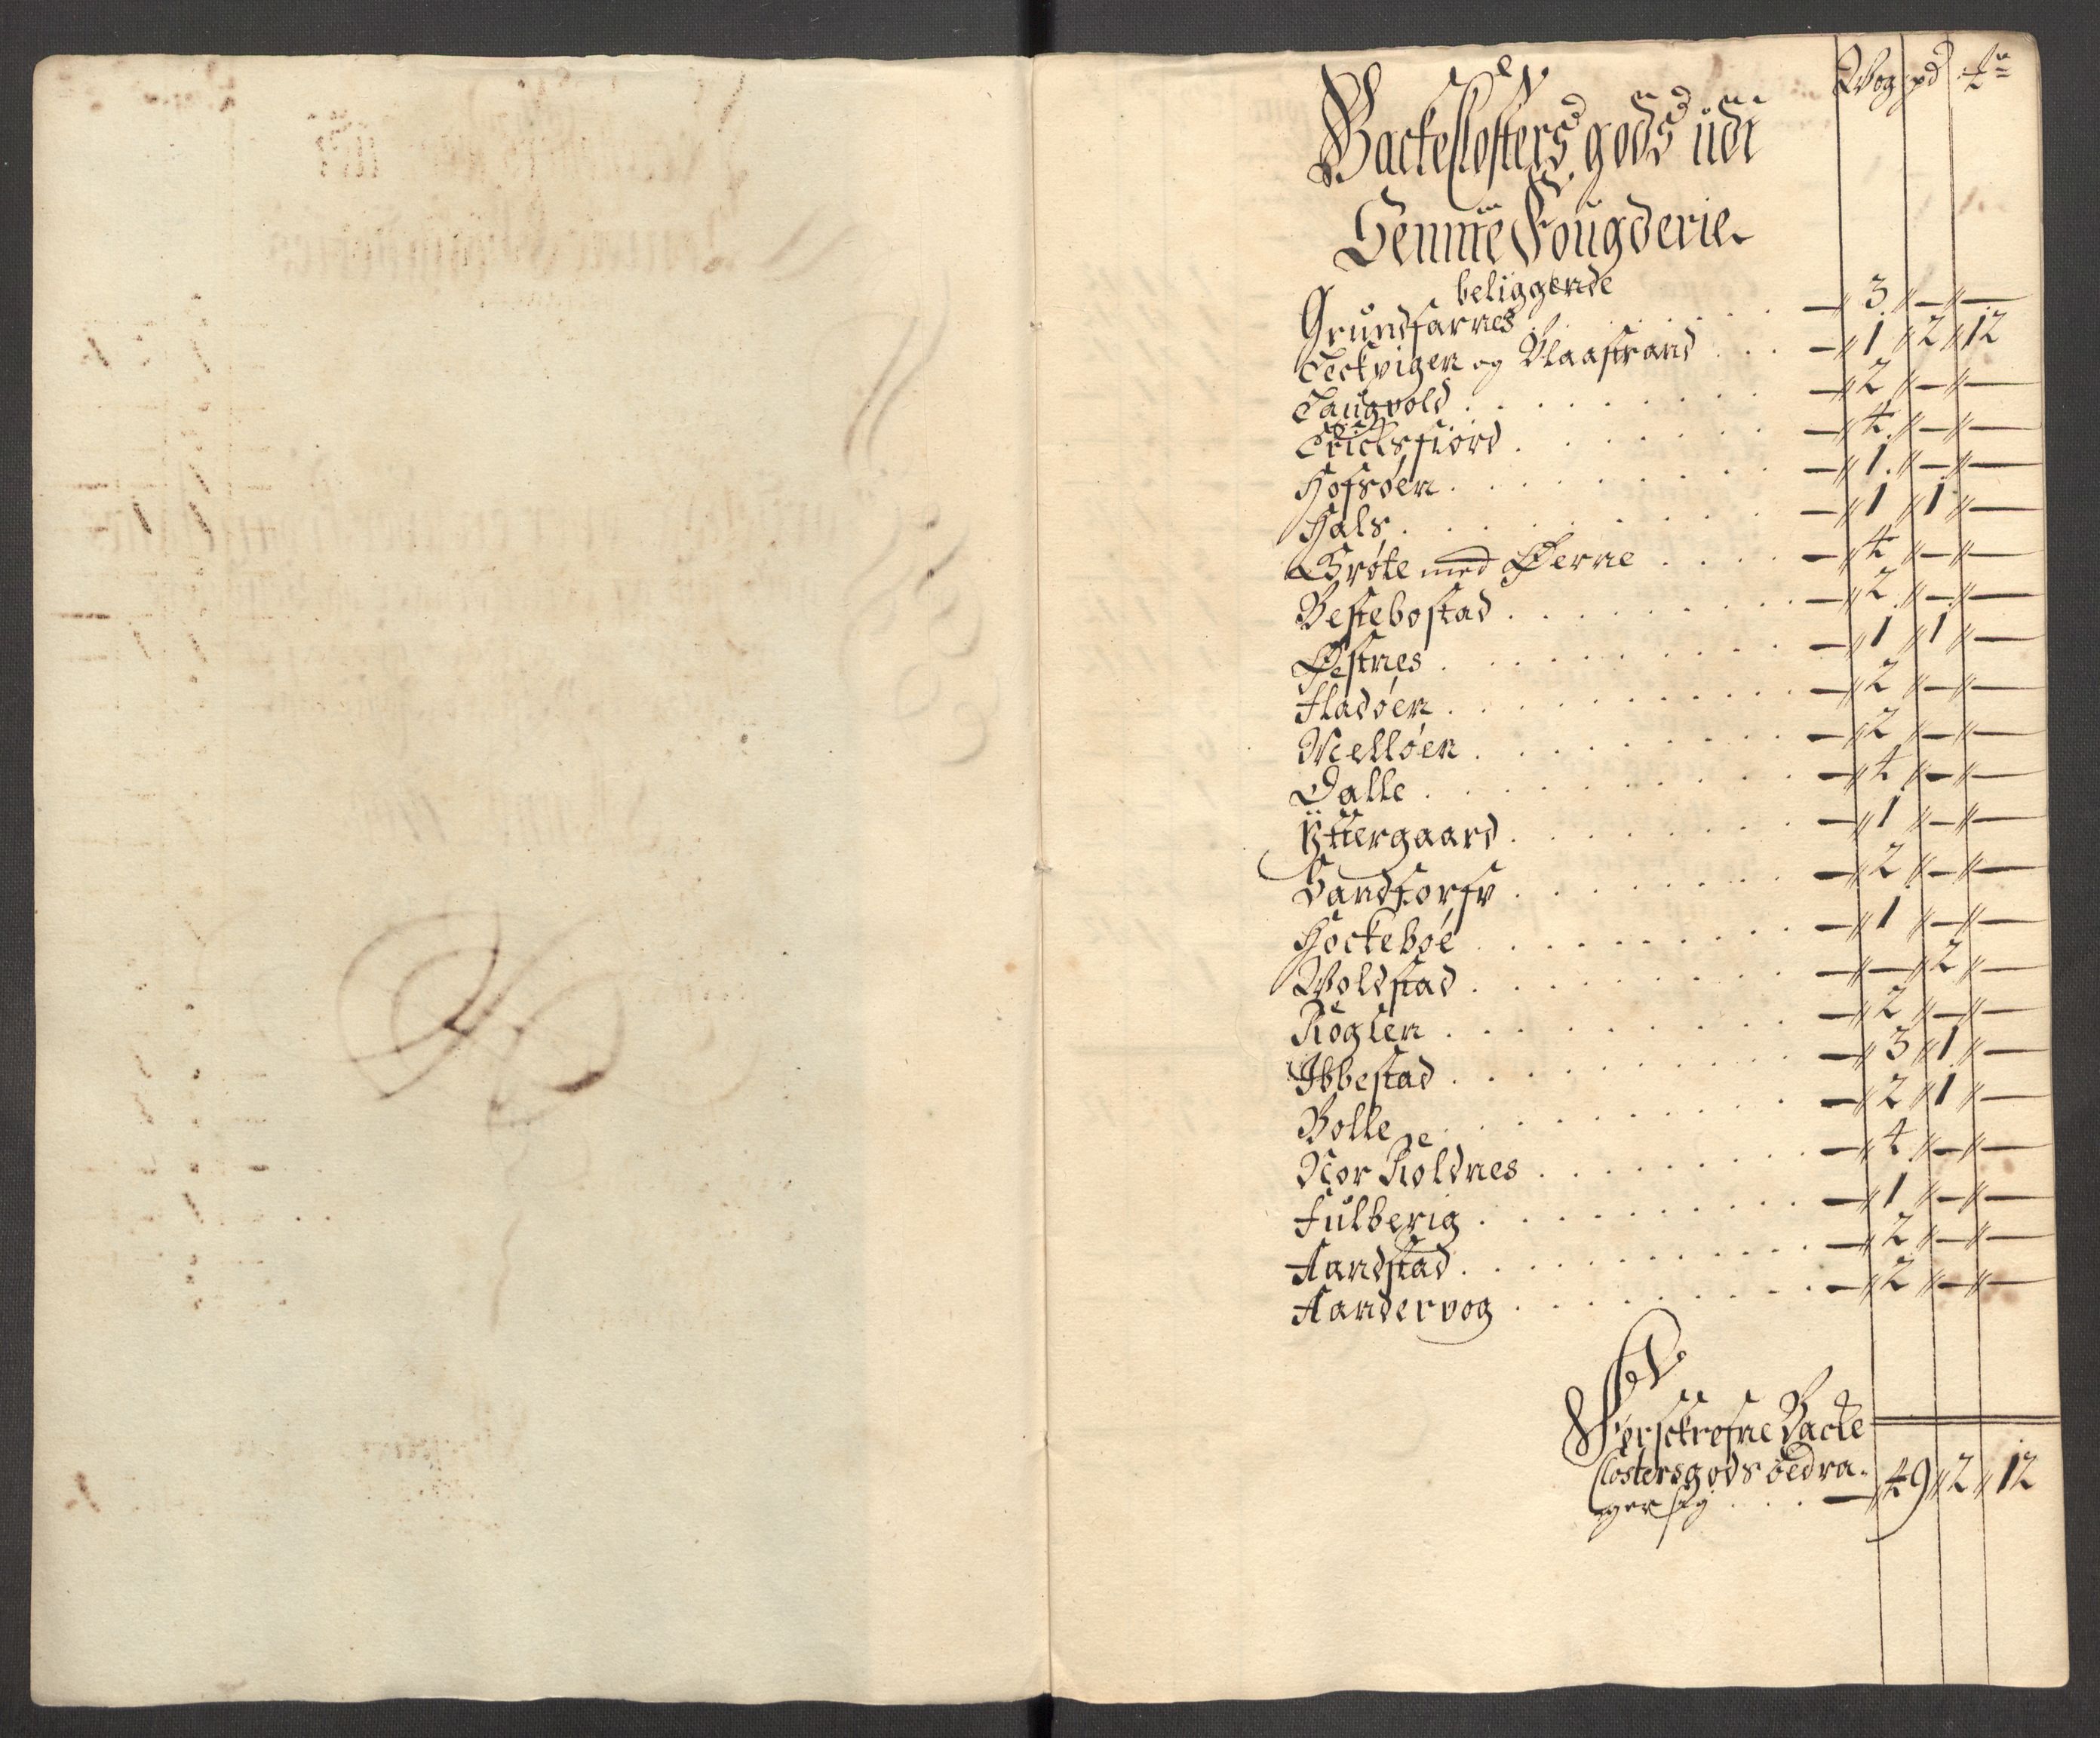 Wog pd
Backeclosters gods udi
Sennie Fougderie
beliggende
Grundfarnes . . . . . . . — 3 — —
Leckvigen og Blaastrand . . . — 1 2 12
Laugvold . . . . . . . . . — 2 — —
Ericksfiord . . . . . . . — 4 — —
Hofsøen . . . . . . . . — 1 — —
Hals . . . . . . . . . — 1 1 —
Brøte med Øerne . . . . — 4 — —
Vestebostad . . . . . . . . — 2 — —
Østnes . . . . . . . . . — 1 1 —
Fladøen . . . . . . . . . — 2 — —
Melløen . . . . . . . . . — 2 — —
Dalle . . . . . . . . . — 4 — —
Yttergaard . . . . . . . — 1 — —
Sandtorfv . . . . . . . — 2 — —
Høckebøe . . . . . . . . — 1 — —
Woldstad . . . . . . . . — — 2 —
Røglen . . . . . . . . — 2 — —
Ibbestad . . . . . . . . — 3 1 —
Bolle . . . . . . . . . — 2 1 —
Nor Roldnes . . . . . . . — 4 — —
Fulberig . . . . . . . . — 1 — —
Aandstad . . . . . . . . — 2 — —
Aandervog . . . . . . . — 2 — —
Forschrefne Backe
Closters gods bedra-
ger sig . . . — 49 2 12